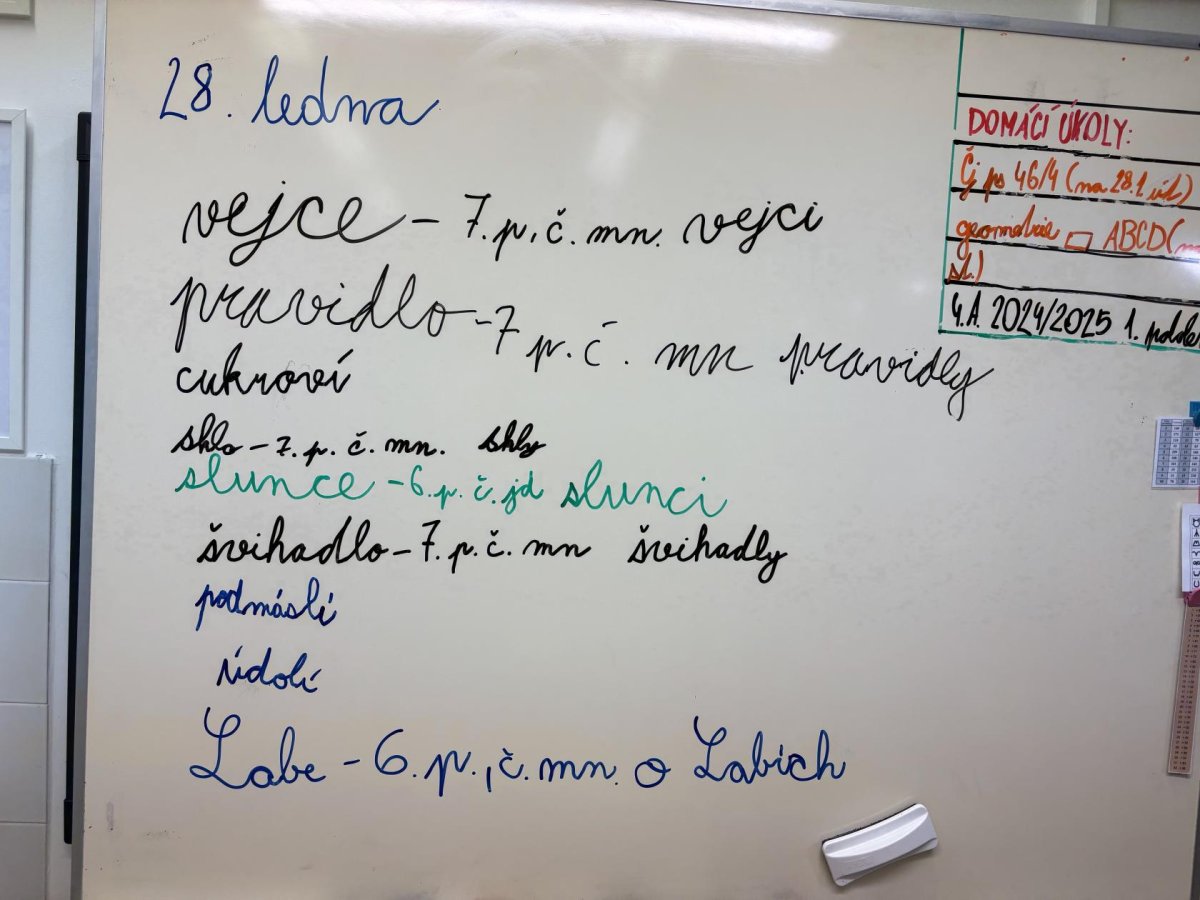 28. ledna
vejce - 7. p., č. mn. vejci
pravidlo - 7 p. č. mn pravidly
cukroví
sklo - 7. p. č. mn. skly
slunce - 6. p. č. jd slunci
švihadlo - 7. p. č. mn švihadly
podmáslí
údolí
Labe - 6. p., č. mn. o Labích
DOMÁCÍ ÚKOLY:
Čj ps 46/4 (na 28.1
geometrie ▭ ABCD(
st.)
4.A. 2024/2025 1.